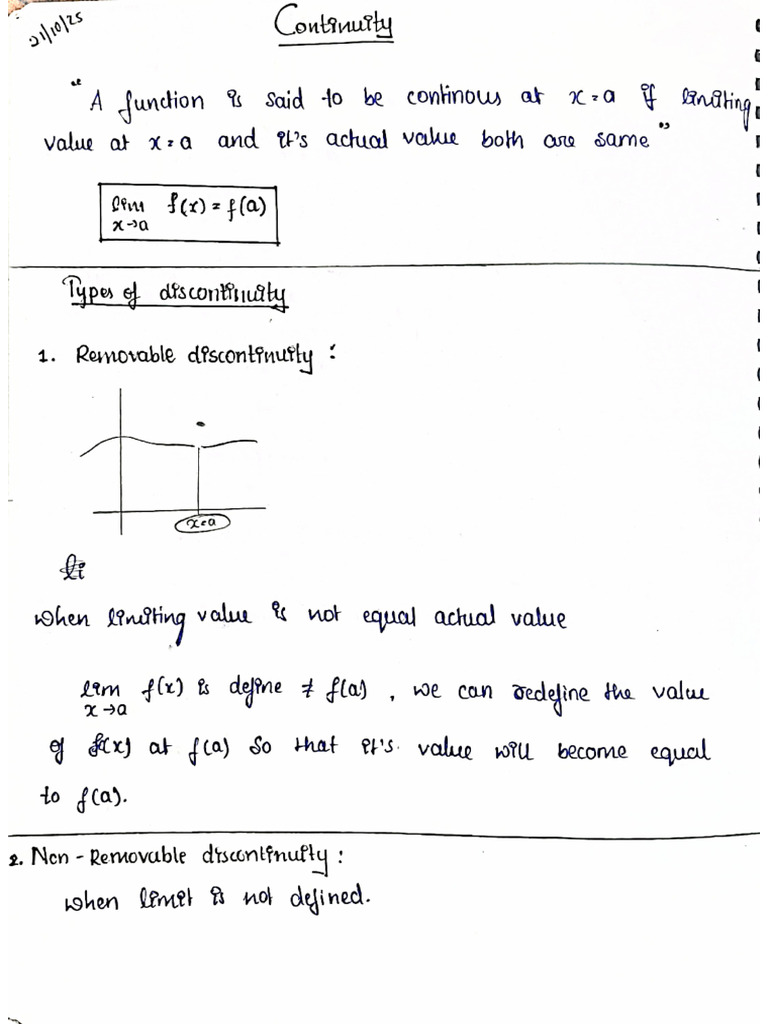 21/10/25
Continuity
"A function is said to be continous at x = a if limiting
value at x = a and it's actual value both are same"
lim f(x) = f(a)
x→a
Types of discontinuity
1. Removable discontinuity :
x=a
li
when limiting value is not equal actual value
lim f(x) is define ≠ f(a) , we can redefine the value
x→a
of f(x) at f(a) so that it's value will become equal
to f(a).
2. Non - Removable discontinuity :
when limit is not defined.